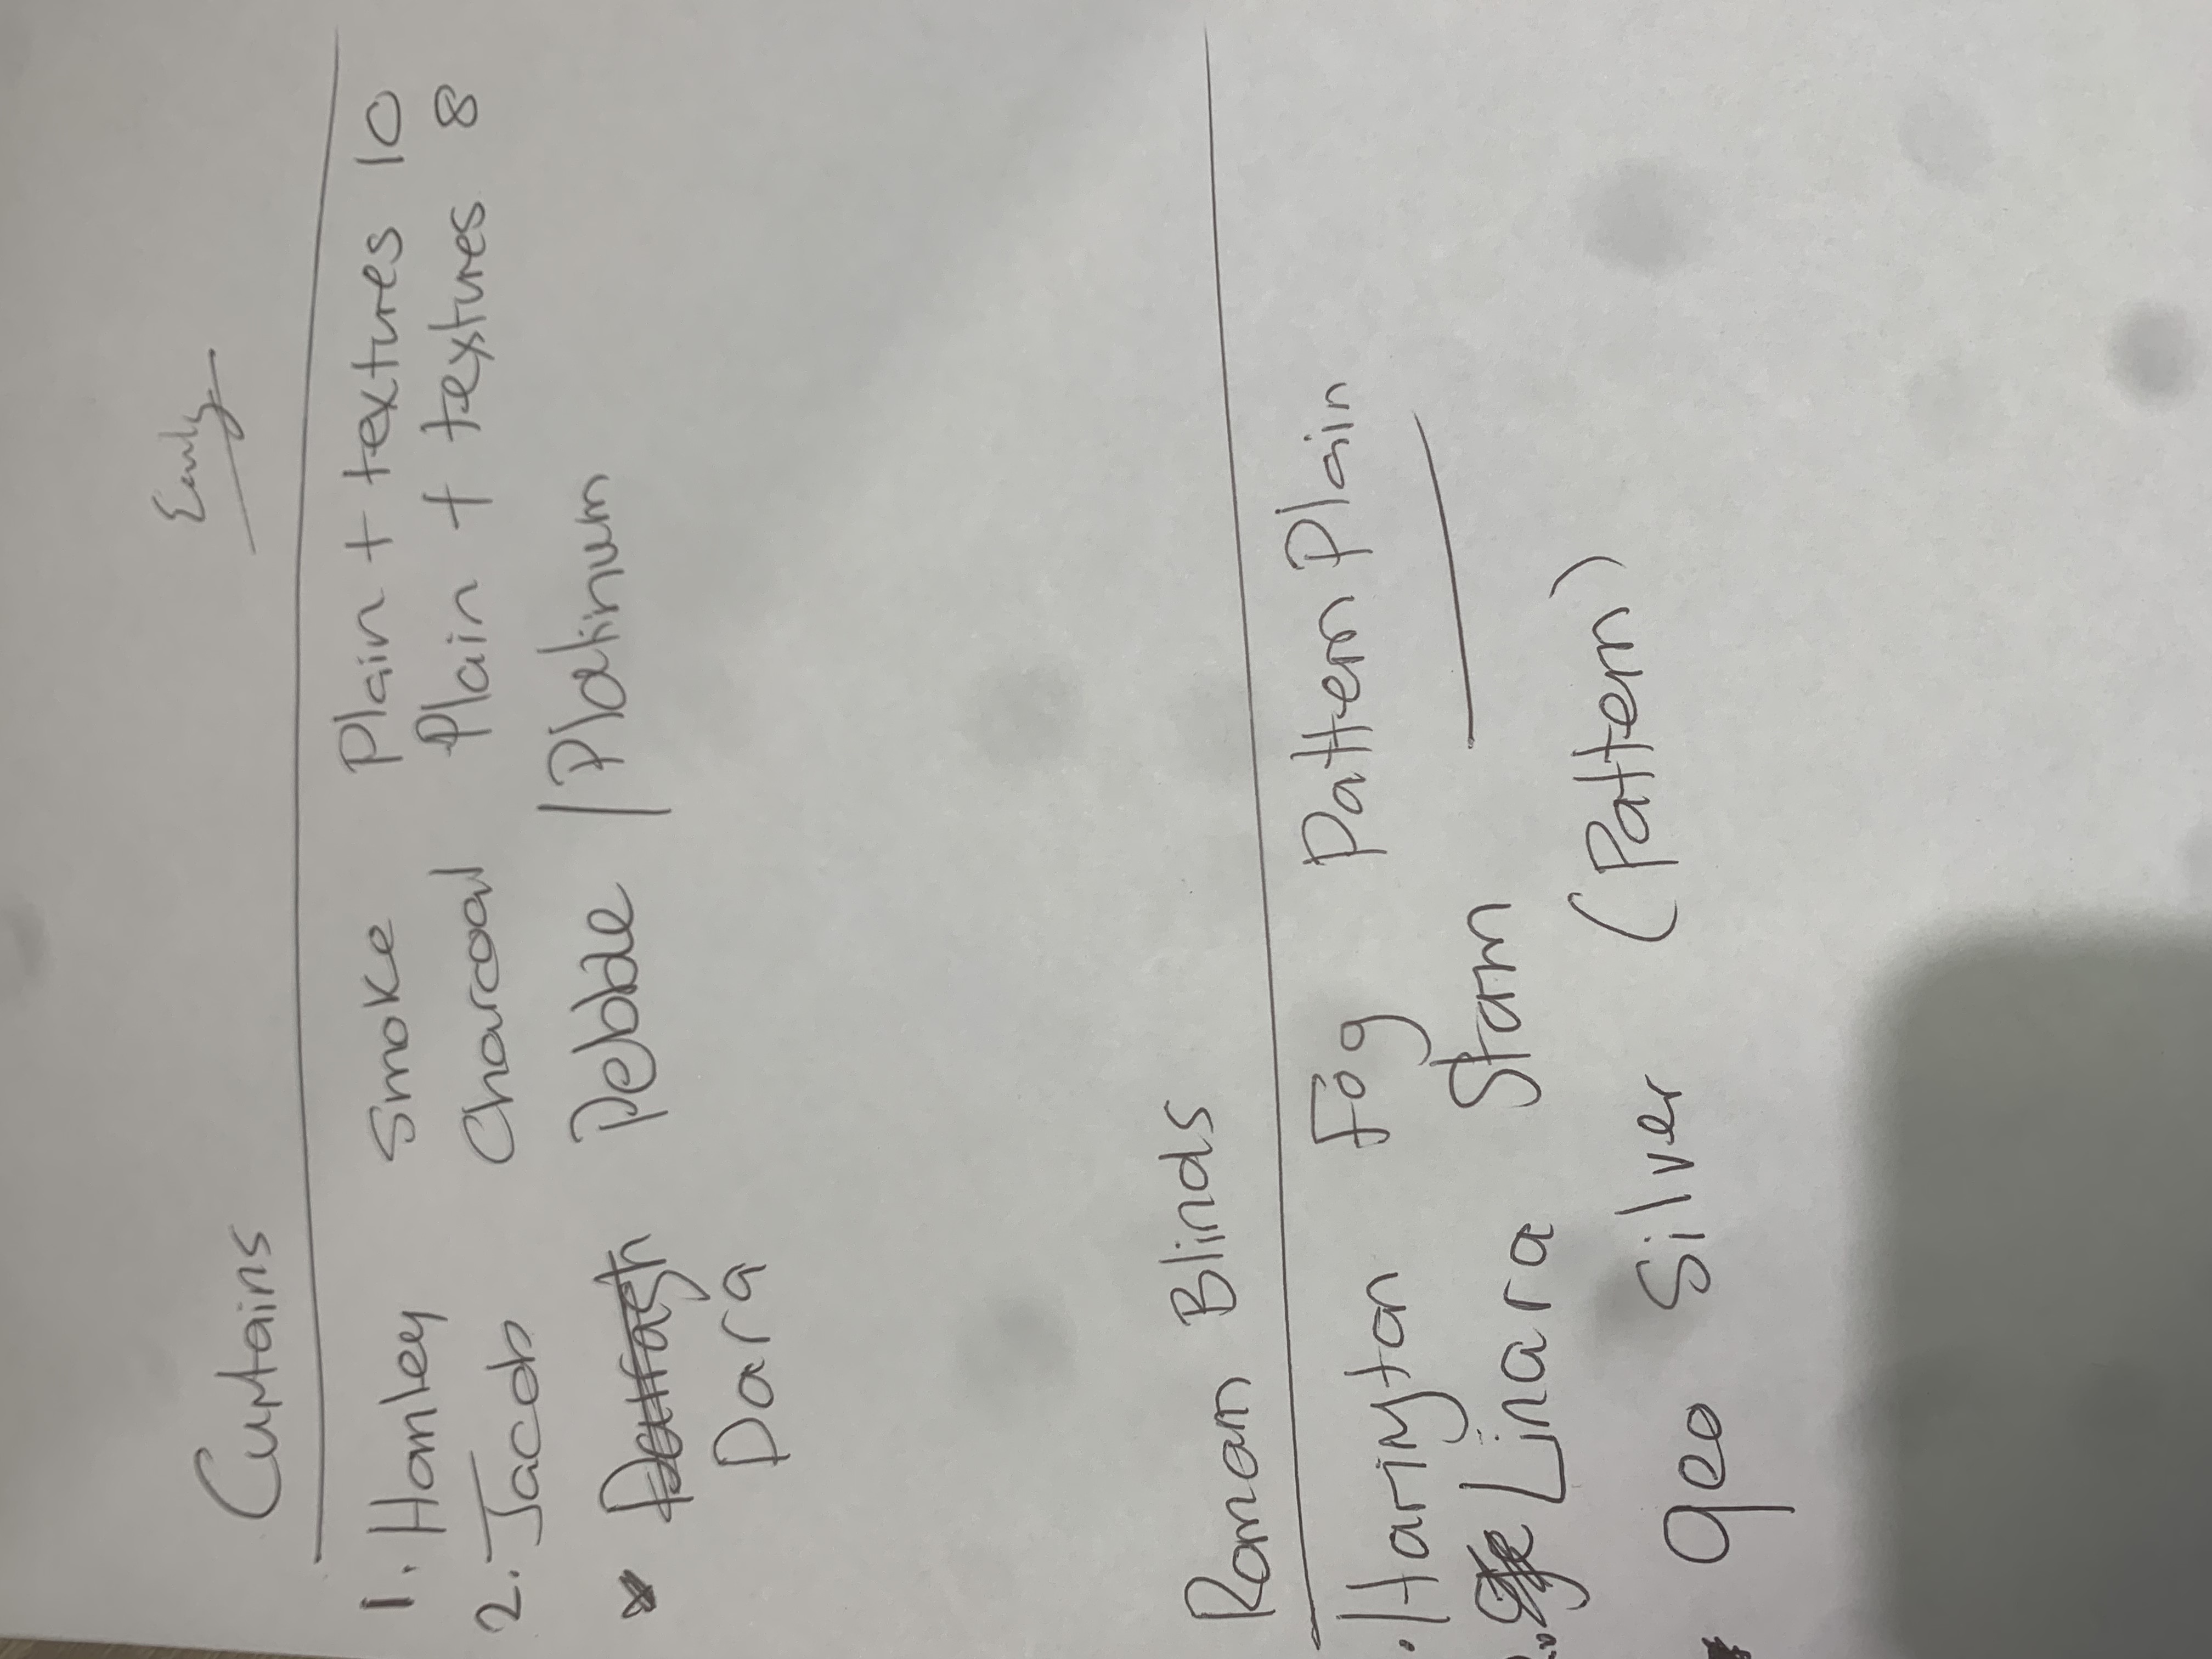 Emly
Curtains
1. Hamley Smoke Plain + textures 10
2. Jacob Charcoal Plain + textures 8
Pebble | Platinum
Darg
Roman Blinds
. Haringtan Fog Pattern Plain
Linara Storm
geo Silver (Pattern)